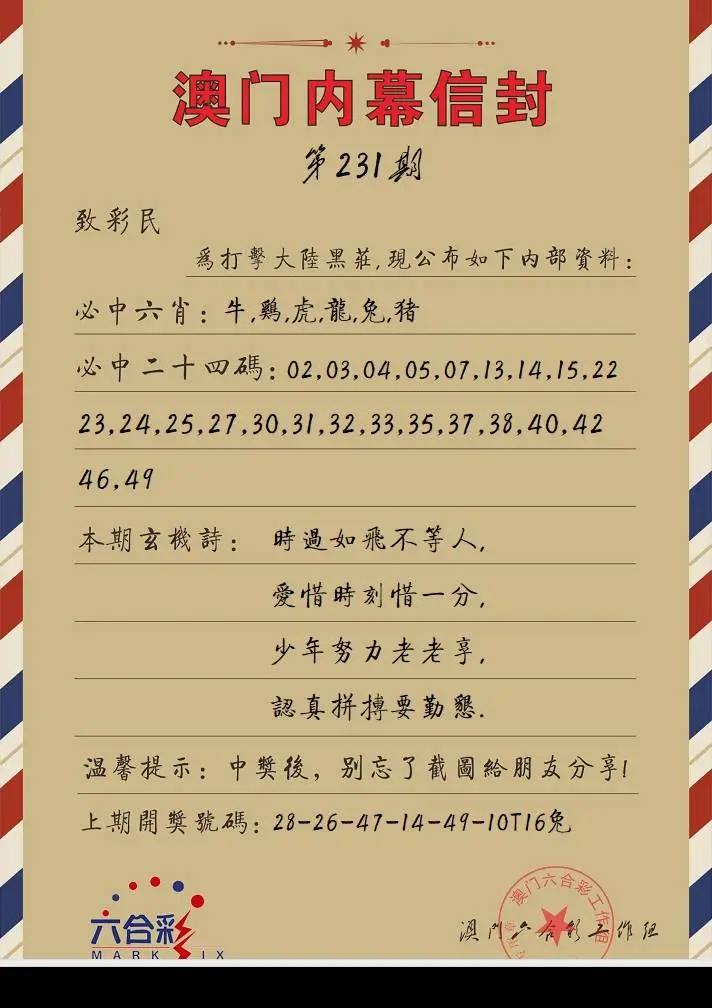 澳门内幕信封
第231期
致彩民
爲打擊大陸黑莊,現公布如下内部資料:
必中六肖:牛,鷄,虎,龍,兔,猪
必中二十四碼:02,03,04,05,07,13,14,15,22
23,24,25,27,30,31,32,33,35,37,38,40,42
46,49
本期玄機詩: 時過如飛不等人,
愛惜時刻惜一分,
少年努力老老享,
認真拼搏要勤懇.
温馨提示:中獎後,别忘了截圖給朋友分享!
上期開獎號碼:28-26-47-14-49-10T16兔
澳门六合彩工作组
六合彩
澳门六合彩工作组
MARK IX